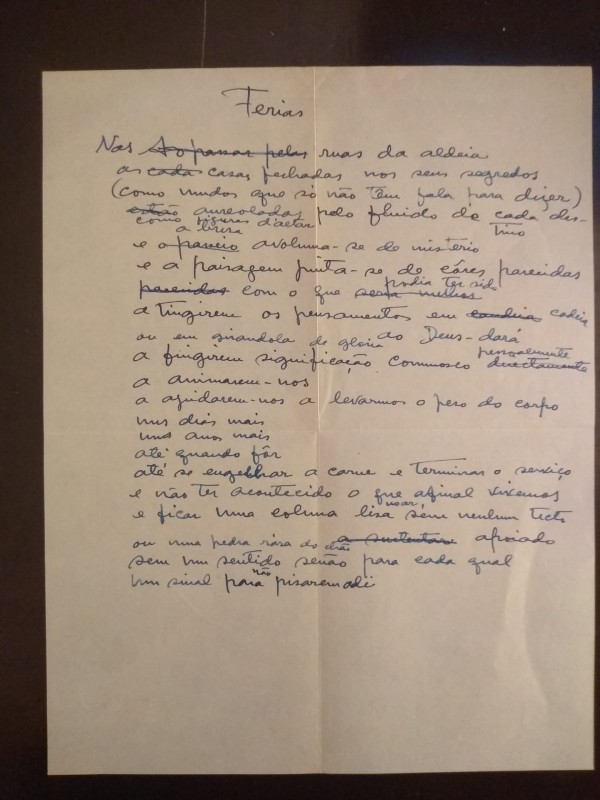 Ferias
Nas Ao passar pelas ruas da aldeia
as cada casas fechadas nos seus segredos
(como mudos que só não têm fala para dizer)
estão aureoladas pelo fluido de cada des-
tino
como figuras d'altar
a brisa
e o passeio avoluma-se de mistério
e a paisagem junta-se de côres parecidas
podia ter sido
parecidas com o que seria menos
a tingirem os pensamentos em cadeia
ou em girandola de gloria ao Deus-dará
a fingirem significação connosco directamente
pessoalmente
a animarem-nos
a ajudarem-nos a levarmos o peso do corpo
uns dias mais
uns anos mais
até quando fôr
até se engelhar a carne e terminar o serviço
e não ter acontecido o que afinal vivemos
e ficar uma coluna lisa no ar, sem nenhum tecto
ou uma pedra rasa do chão a sustentar apoiado
sem um sentido senão para cada qual
um sinal para não pisarem ali